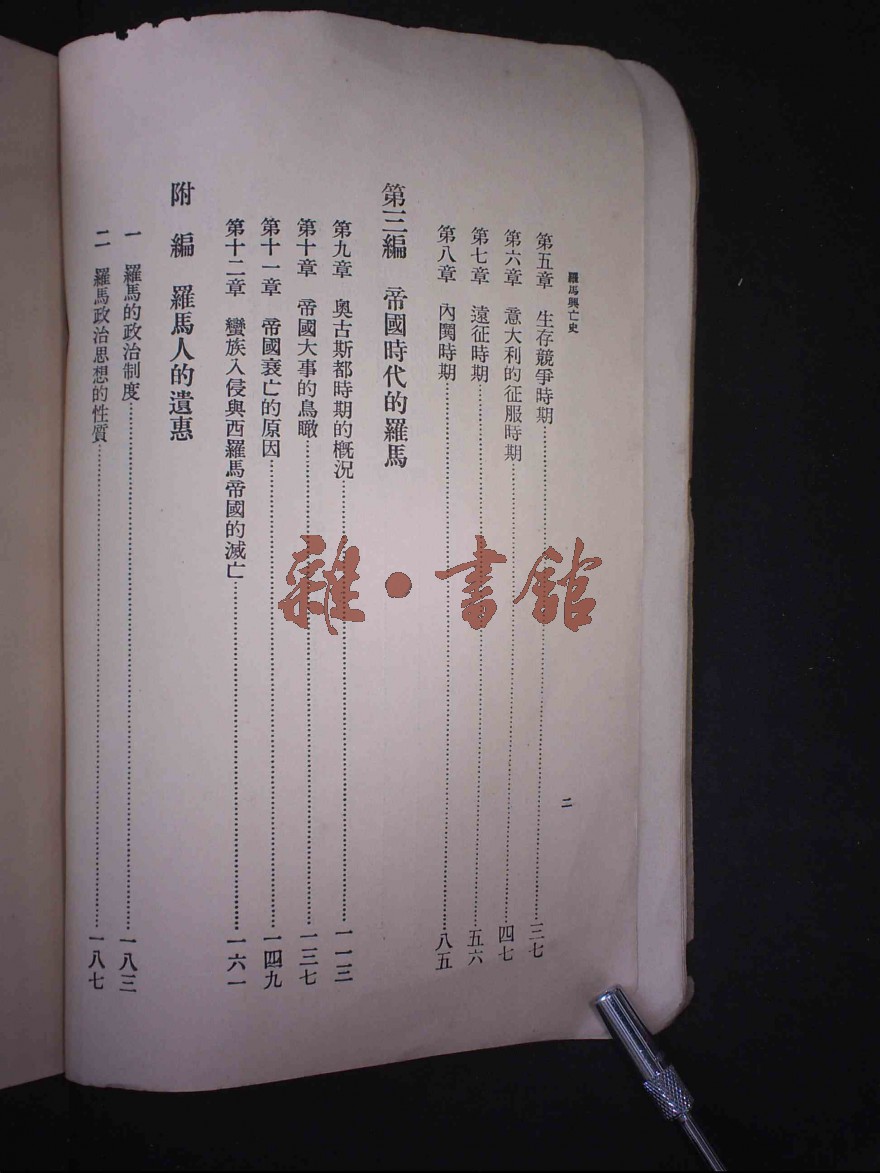 羅馬興亡史
二
第五章 生存競爭時期……三七
第六章 意大利的征服時期……四七
第七章 遠征時期……五六
第八章 內鬨時期……八五
第三編 帝國時代的羅馬
第九章 奧古斯都時期的概況……一一三
第十章 帝國大事的鳥瞰……一三七
第十一章 帝國衰亡的原因……一四九
第十二章 蠻族入侵與西羅馬帝國的滅亡……一六一
附編 羅馬人的遺惠
一 羅馬的政治制度……一八三
二 羅馬政治思想的性質……一八七
雜·書館